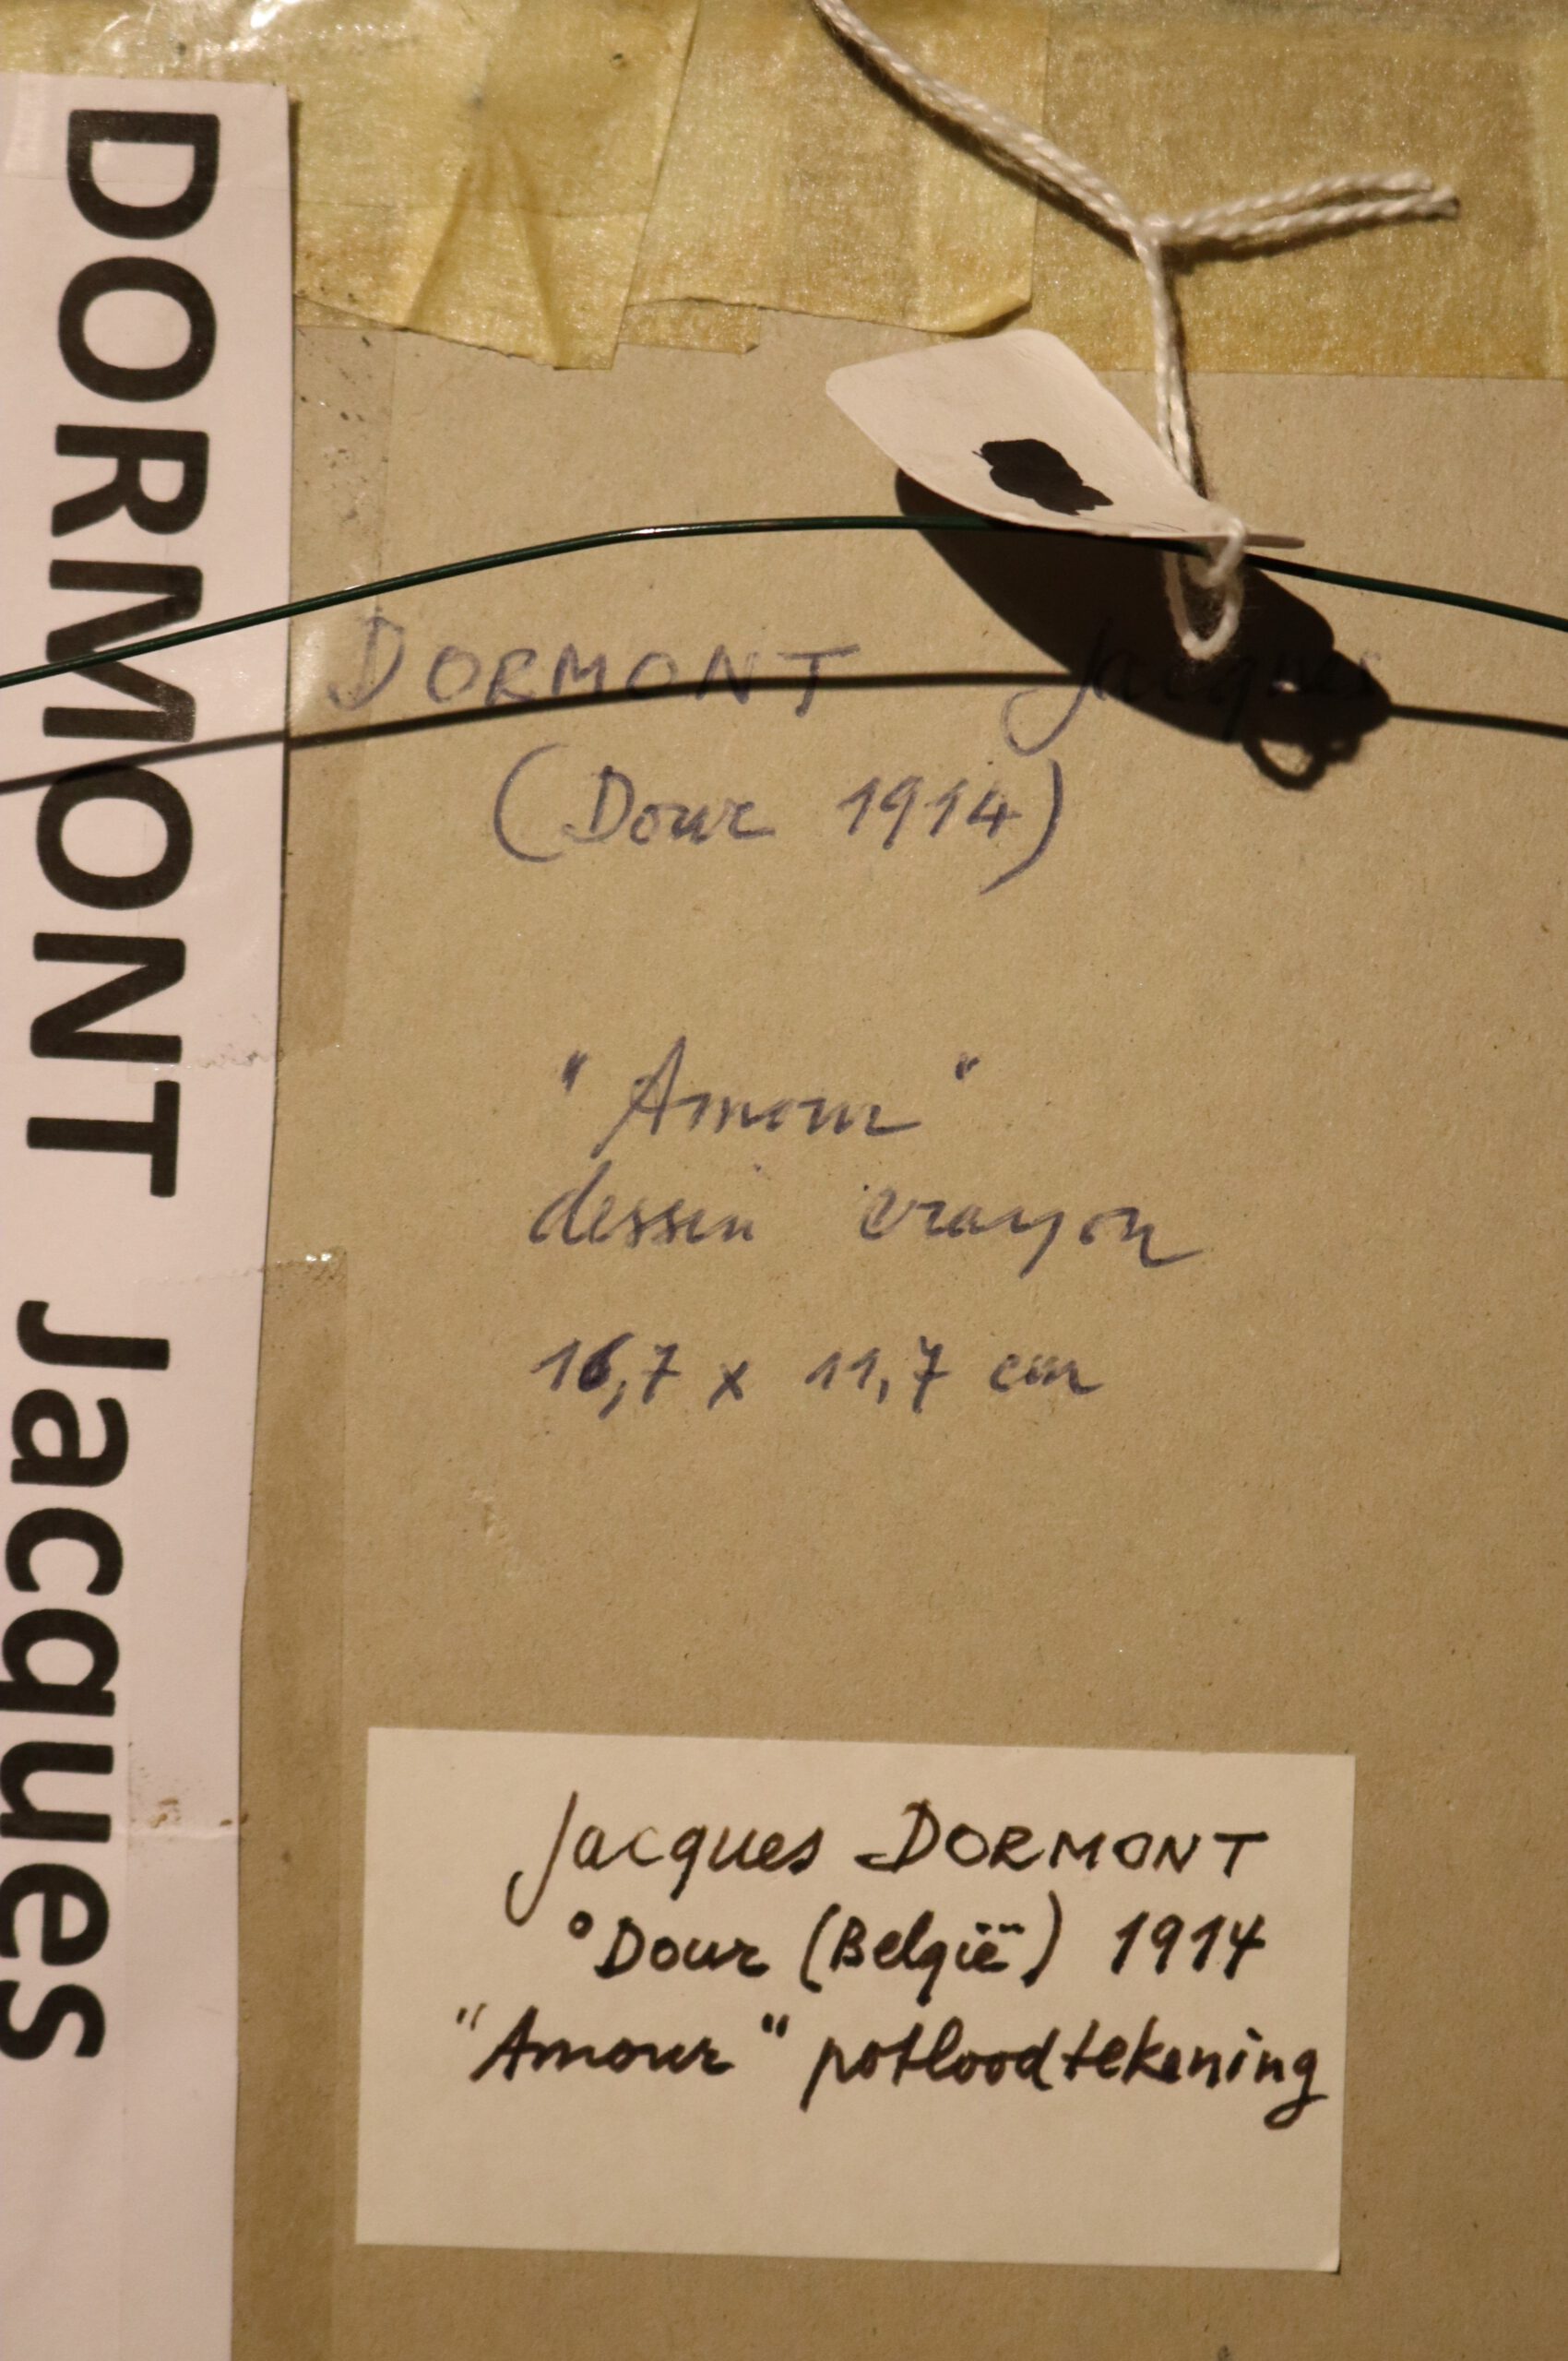 DORMONT Jacques
DORMONT Jacques
(Dour 1914)
"Amour"
dessin crayon
16,7 x 11,7 cm
Jacques DORMONT
°Dour (België) 1914
"Amour" potloodtekening